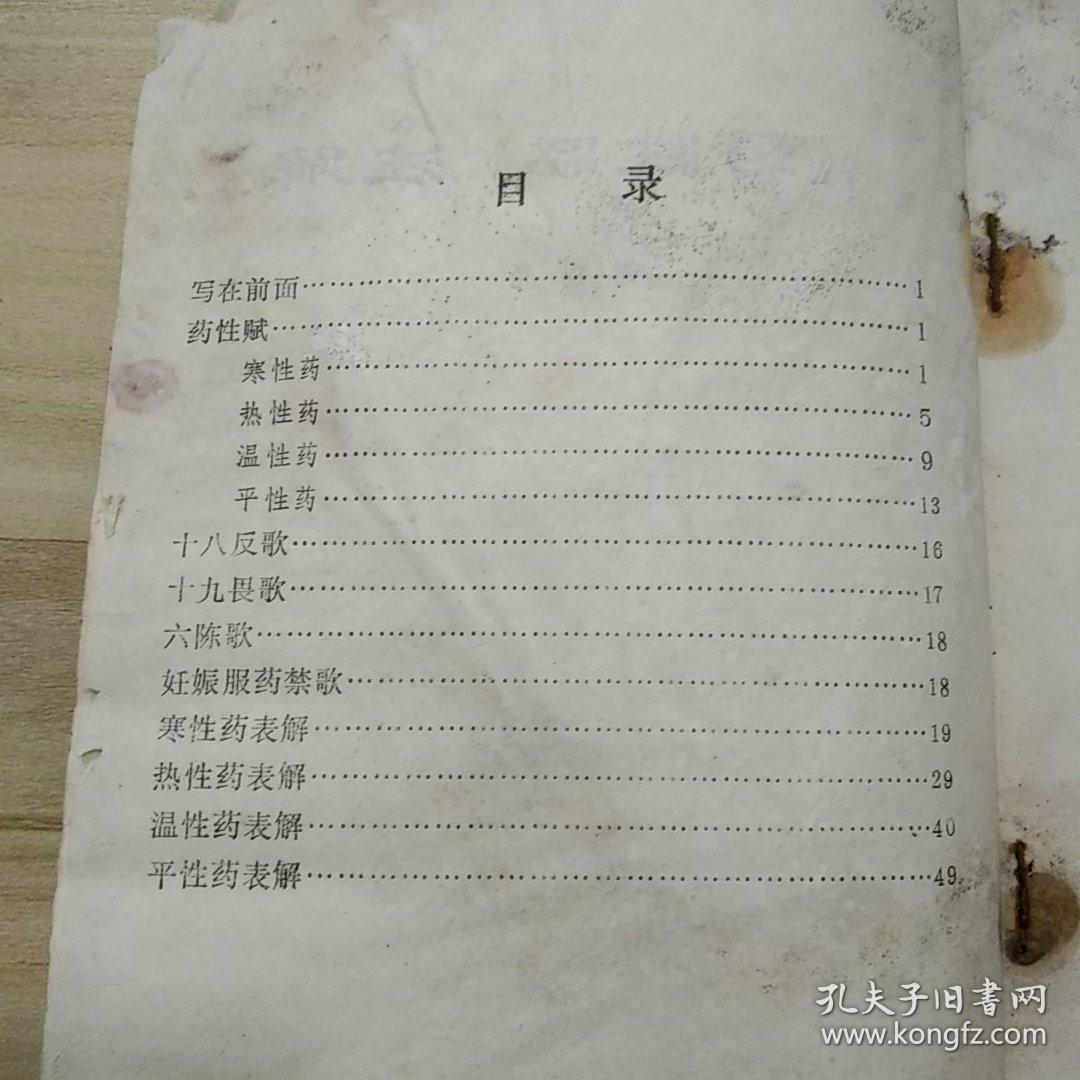 目 录
写在前面……1
药性赋……1
寒性药……1
热性药……5
温性药……9
平性药……13
十八反歌……16
十九畏歌……17
六陈歌……18
妊娠服药禁歌……18
寒性药表解……19
热性药表解……29
温性药表解……40
平性药表解……49
孔夫子旧書网
www.kongfz.com